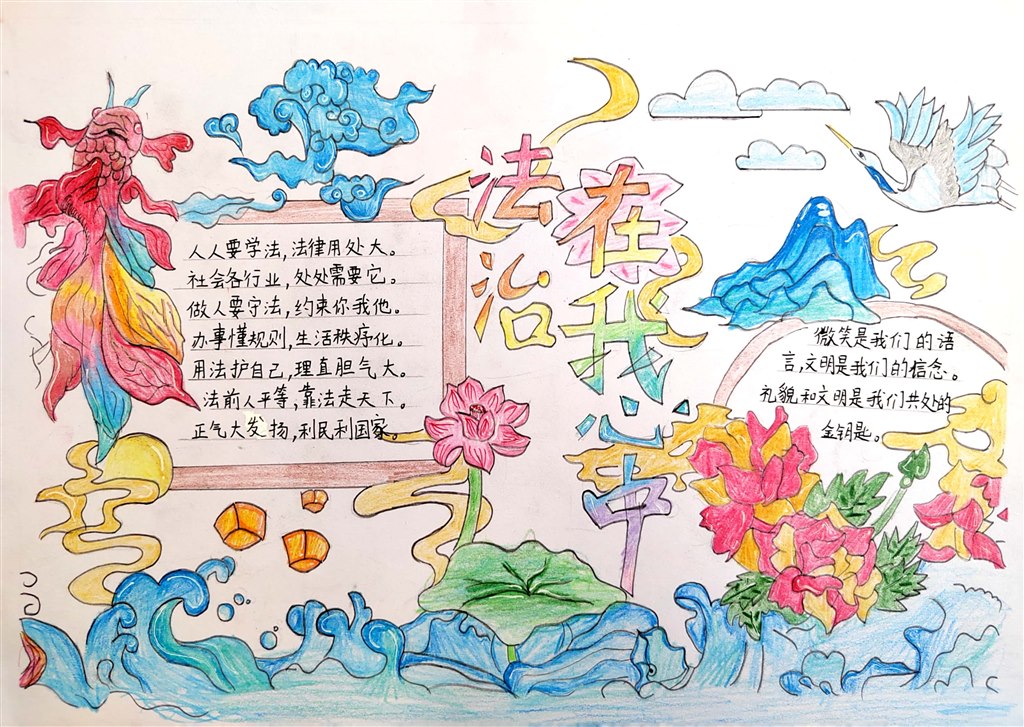 法治
在我心中
人人要学法,法律用处大。
社会各行业,处处需要它。
做人要守法,约束你我他。
办事懂规则,生活秩序化。
用法护自己,理直胆气大。
法前人平等,靠法走天下。
正气大发扬,利民利国家。
微笑是我们的语
言,文明是我们的信念。
礼貌和文明是我们共处的
金钥匙。